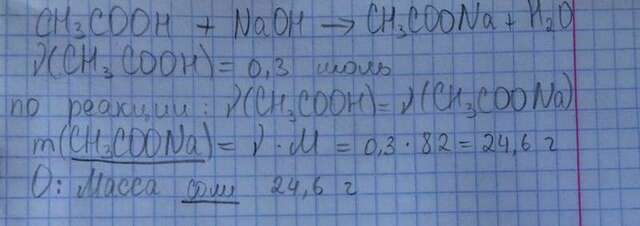 CH₃COOH + NaOH → CH₃COONa + H₂O
ν(CH₃COOH) = 0,3 моль
по реакции: ν(CH₃COOH) = ν(CH₃COONa)
m(CH₃COONa) = ν · M = 0,3 · 82 = 24,6 г
О: Масса соли 24,6 г